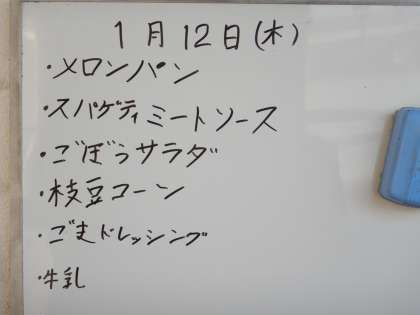 1月12日(木)
・メロンパン
・スパゲティミートソース
・ごぼうサラダ
・枝豆コーン
・ごまドレッシング
・牛乳